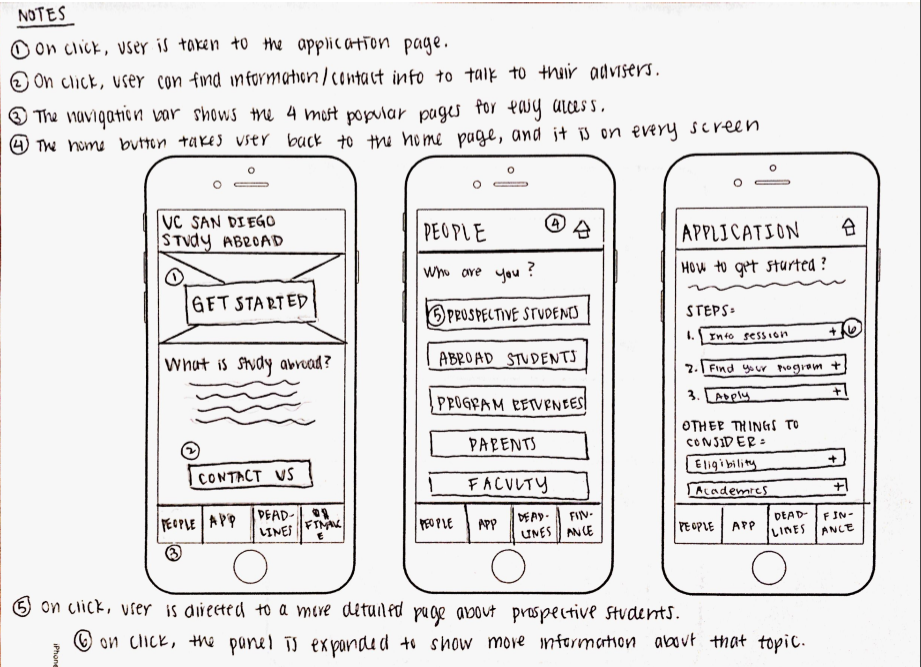 NOTES
① On click, user is taken to the application page.
② On click, user can find information/contact info to talk to their advisers.
③ The navigation bar shows the 4 most popular pages for easy access.
④ The home button takes user back to the home page, and it is on every screen
UC SAN DIEGO
STUDY ABROAD
①
GET STARTED
What is study abroad?
②
CONTACT US
PEOPLE APP DEAD-LINES FINANCE
③
PEOPLE ④
Who are you?
⑤ PROSPECTIVE STUDENTS
ABROAD STUDENTS
PROGRAM RETURNEES
PARENTS
FACULTY
PEOPLE APP DEAD-LINES FIN-ANCE
APPLICATION
How to get started?
STEPS:
1. Info session + ⑥
2. Find your program +
3. Apply +
OTHER THINGS TO
CONSIDER:
Eligibility +
Academics +
PEOPLE APP DEAD-LINES FIN-ANCE
⑤ On click, user is directed to a more detailed page about prospective students.
⑥ on click, the panel is expanded to show more information about that topic.
iPhone